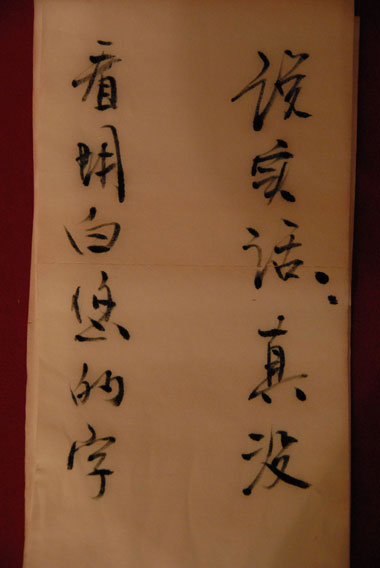 说实话:真没
看明白您的字